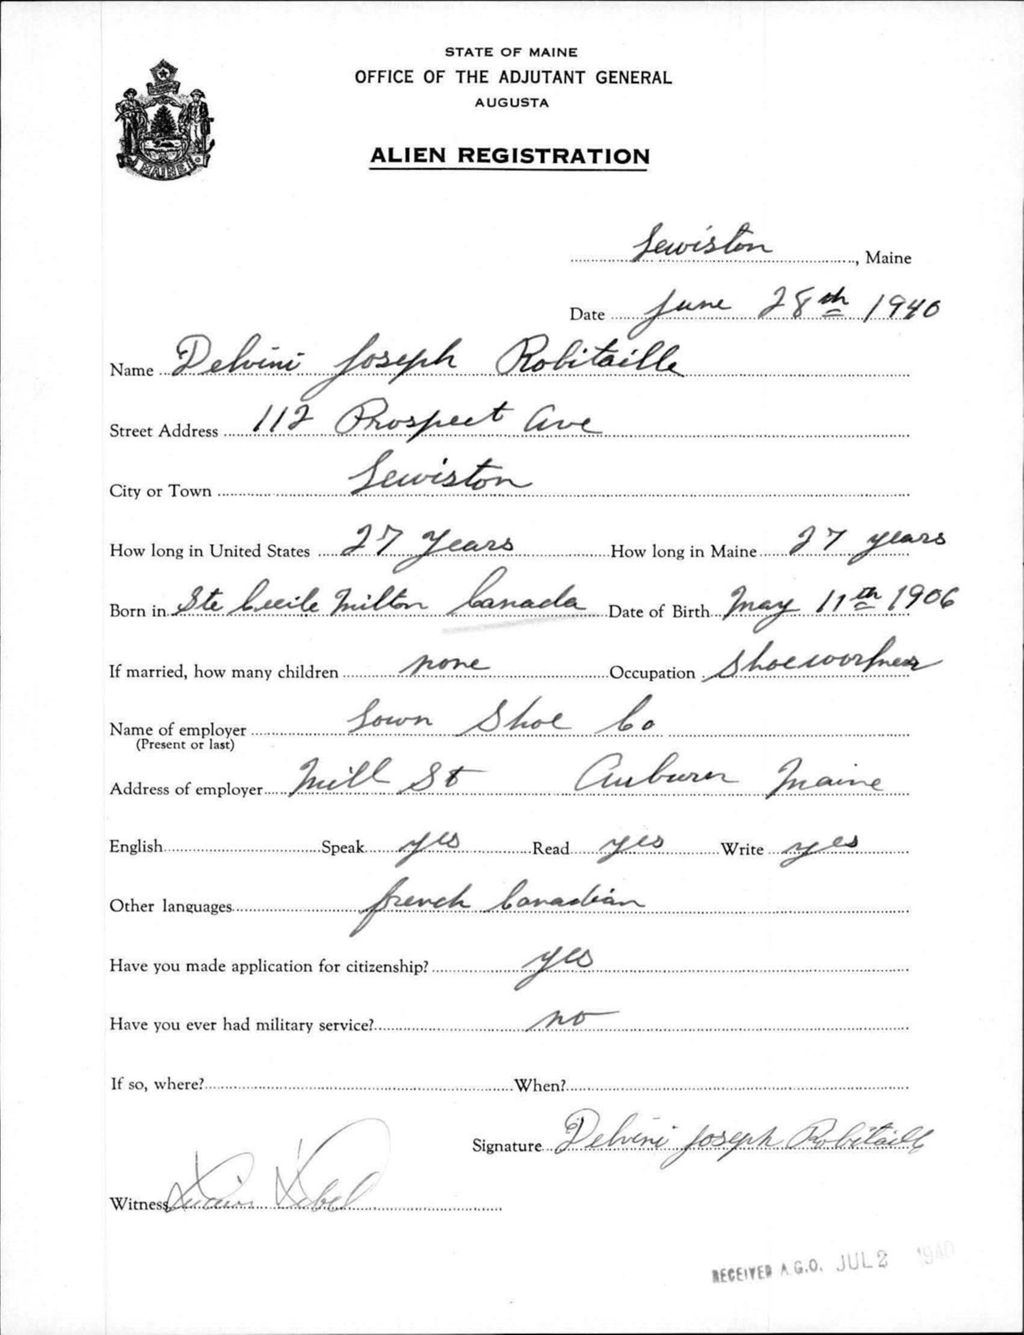 STATE OF MAINE
OFFICE OF THE ADJUTANT GENERAL
AUGUSTA
ALIEN REGISTRATION
MAINE
Lewiston, Maine
Date June 28th 1940
Name Delvini Joseph Robitaille
Street Address 112 Prospect Ave
City or Town Lewiston
How long in United States 27 Years How long in Maine 27 years
Born in Ste Cecile Milton Canada Date of Birth May 11th 1906
If married, how many children none Occupation Shoeworker
Name of employer Lown Shoe Co
(Present or last)
Address of employer Mill St Auburn Maine
English Speak yes Read yes Write yes
Other languages french Canadian
Have you made application for citizenship? yes
Have you ever had military service? no
If so, where? When?
Signature Delvini Joseph Robitaille
Witness Lucien Lebel
RECEIVED A.G.O. JUL 2 1940